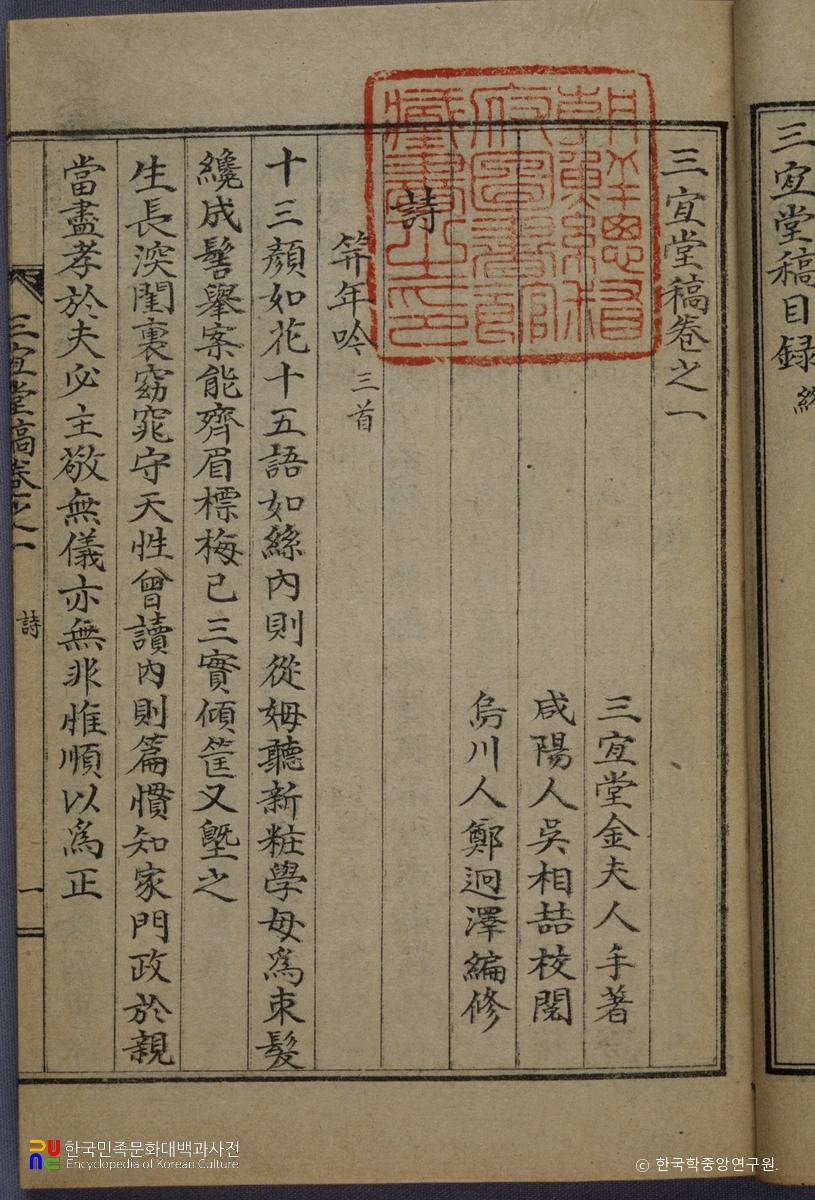 三宜堂稿目録 終
三宜堂稿卷之一
三宜堂金夫人手著
咸陽人吳相喆校閱
烏川人鄭逈澤編修
朝鮮總督
府圖書館
藏書之印
詩
筓年吟 三首
十三顔如花十五語如絲內則從姆聽新粧學母爲束髮
纔成髻舉案能齊眉標梅已三實傾筐又塈之
生長深閨裏窈窕守天性曾讀內則篇慣知家門政於親
當盡孝於夫必主敬無儀亦無非惟順以爲正
三宜堂稿卷之一 詩 一
한국민족문화대백과사전
Encyclopedia of Korean Culture
ⓒ 한국학중앙연구원.